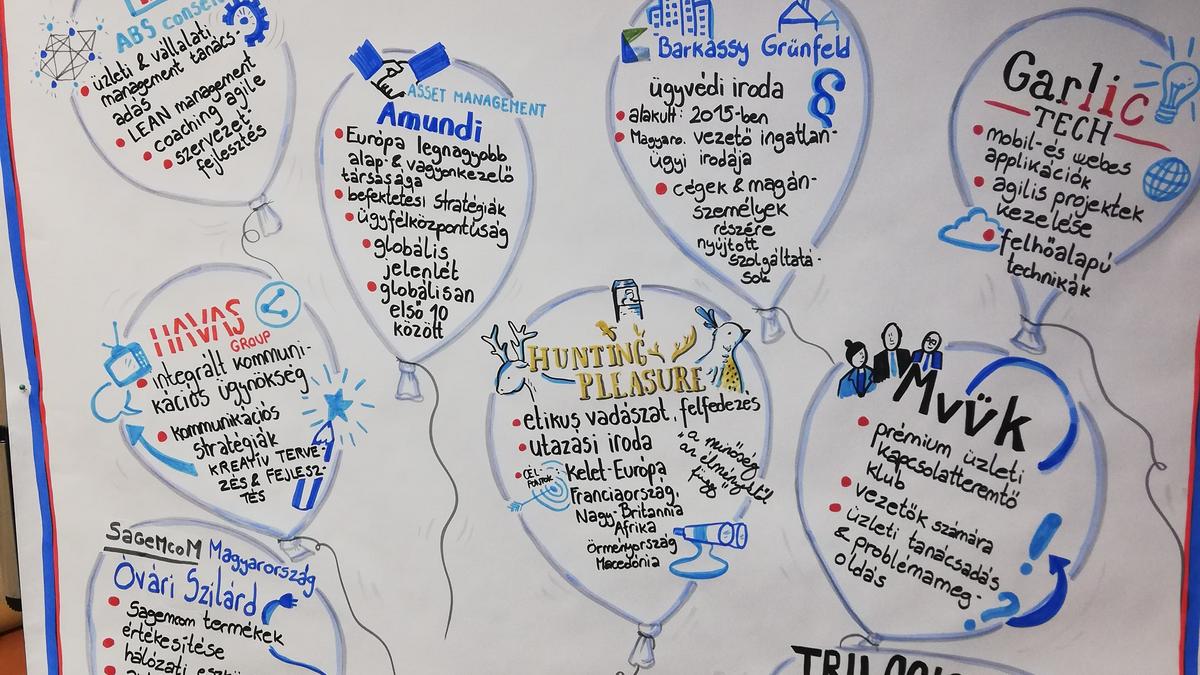 ABS
üzleti & vállalati
management tanács-
adás
LEAN management
coaching agile
szervezet
fejlesztés
ASSET MANAGEMENT
Amundi
Európa legnagyobb
alap- & vagyonkezelő
társasága
befektetési stratégiák
ügyfélközpontúság
globális
jelenlét
globálisan
első 10
között
Barkassy Grünfeld
ügyvédi iroda
alakult: 2015-ben
Magyaro. vezető ingatlan-
ügyi irodája
cégek & magán-
személyek
részére
nyújtott
szolgáltatá-
sok
Garlic
TECH
mobil- és webes
applikációk
agilis projektek
kezelése
felhőalapú
technikák
HAVAS
GROUP
integrált kommuni-
kációs ügynökség
kommunikációs
stratégiák
KREATÍV TERVE-
ZÉS & FEJLESZ-
TÉS
HUNTING
PLEASURE
etikus vadászat, felfedezés
utazási iroda
CÉL-
PONTOK
Kelet-Európa
Franciaország,
Nagy-Britannia
Afrika
Örményország
Macedónia
"a minőség
az élménytől
függ"
MVÜK
prémium üzleti
kapcsolatteremtő
klub
vezetők számára
üzleti tanácsadás
& problémameg-
oldás
SAGEMCOM Magyarország
Óvári Szilárd
Sagemcom termékek
értékesítése
hálózati